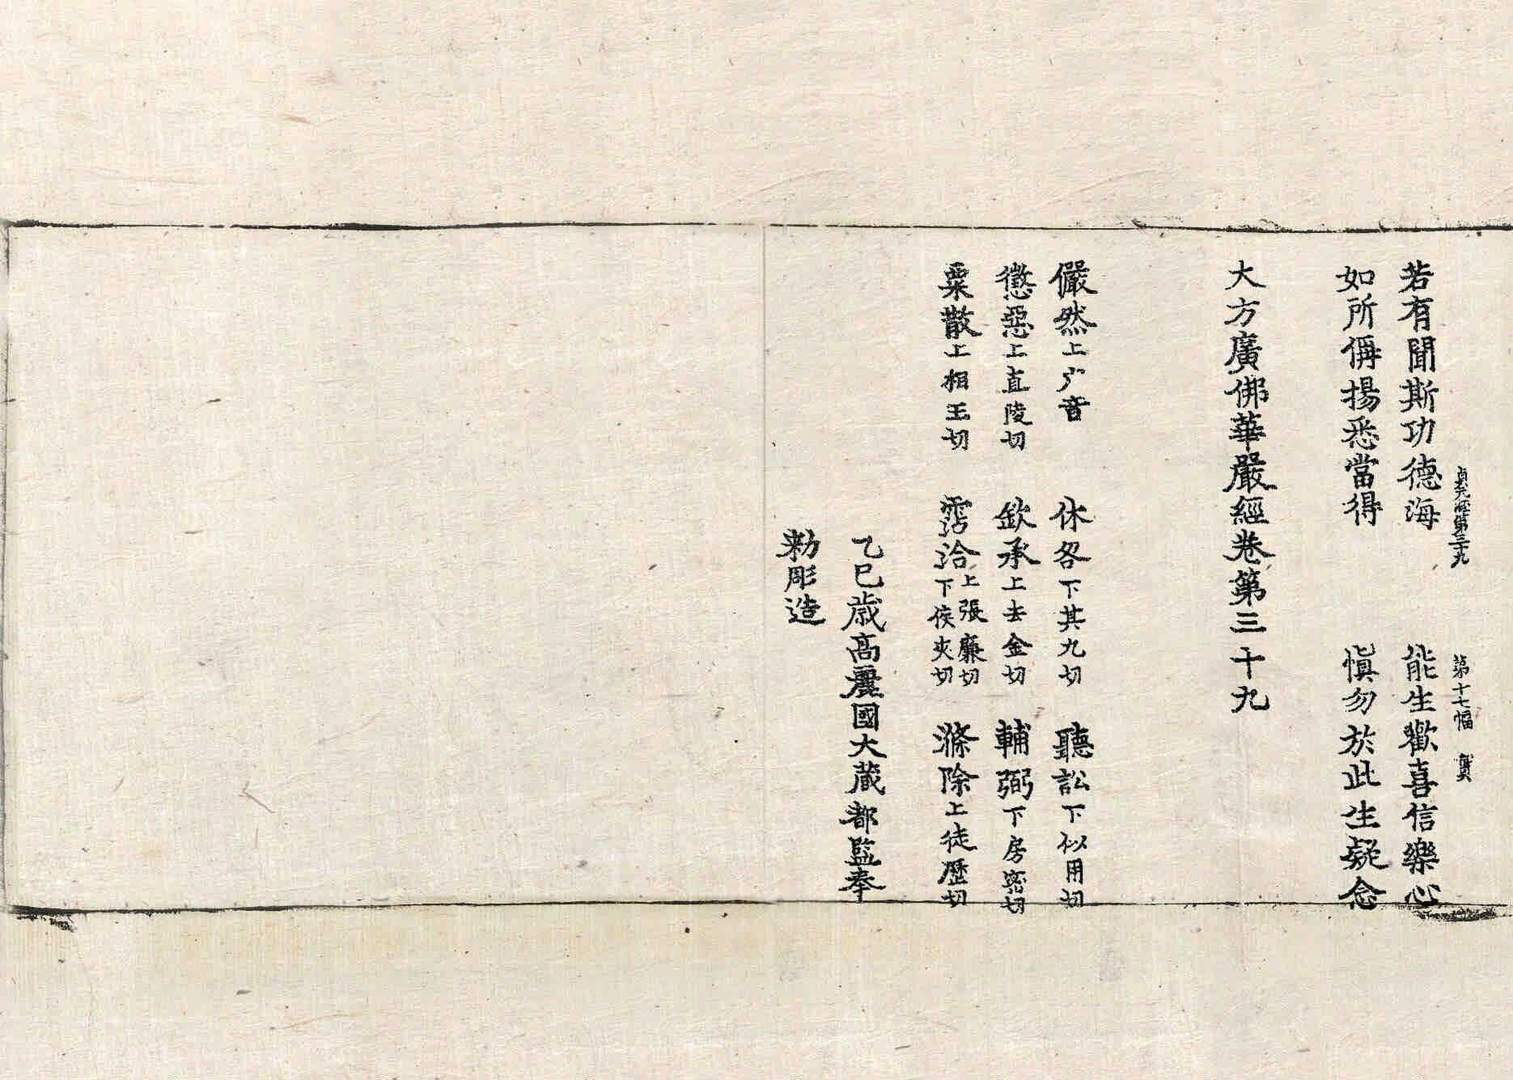 貞元經第三十九　第十七幅　龔
若有聞斯功德海　能生歡喜信樂心
如所偁揚悉當得　愼勿於此生疑念
大方廣佛華嚴經卷第三十九
儼然上广音　休咎下其九切　聽訟下似用切
懲惡上直陵切　欽承上去金切　輔弼下房密切
粟散上相玉切　霑洽上張廉切下侯夾切　滌除上徒歷切
乙巳歲高麗國大藏都監奉
勅彫造